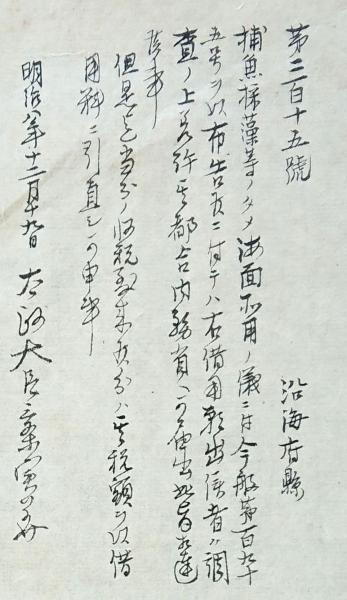 第二百十五號
沿海府縣
捕魚採藻等ノタメ海面所用ノ儀ニ付今般第百九十
五号ヲ以布告候ニ付テハ右借用願出候者ハ調
査ノ上差許其都合内務省ヘ可伺出此旨相達
候事
但是迄当分ノ収税致来候分ハ其税額ヲ以借
用料ニ引直シ可申事
明治八年十二月十九日 太政大臣三条実美